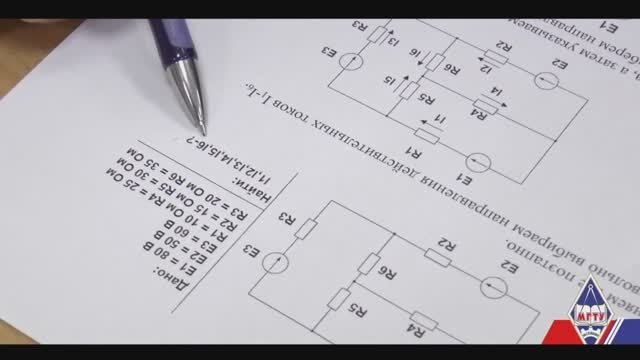 Дано:
E1 = 80 В
E2 = 50 В
E3 = 60 В
R1 = 10 Ом R4 = 25 Ом
R2 = 15 Ом R5 = 30 Ом
R3 = 20 Ом R6 = 35 Ом
Найти:
I1,I2,I3,I4,I5,I6-?
R4
R5
E2
R6
R2
E3
R3
поэтапно.
выбираем направления действительных токов I₁-I₆.
E1
R1
I1
R4
I4
R5
I5
E2
R2
I2
R6
I6
E3
R3
I3
а затем указываем
E1
МГТУ